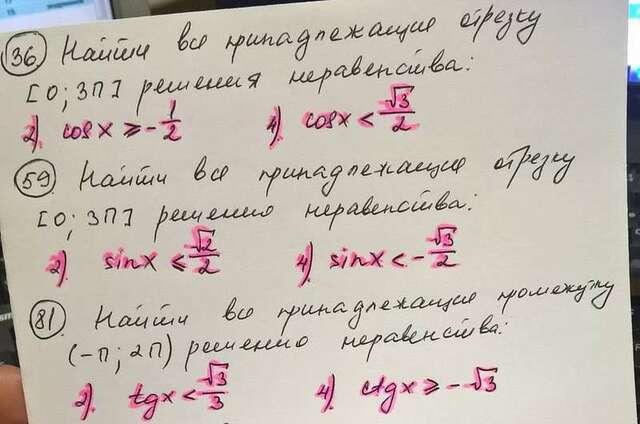 36. Найти все принадлежащие отрезку
[0; 3П] решения неравенства:
2) cosx ≥ -1/2 4) cosx < √3/2
59. Найти все принадлежащие отрезку
[0; 3П] решению неравенства:
2) sinx ≤ √2/2 4) sinx < -√3/2
81. Найти все принадлежащие промежутку
(-П; 2П) решению неравенства:
2). tgx < √3/3 4) ctgx ≥ -√3